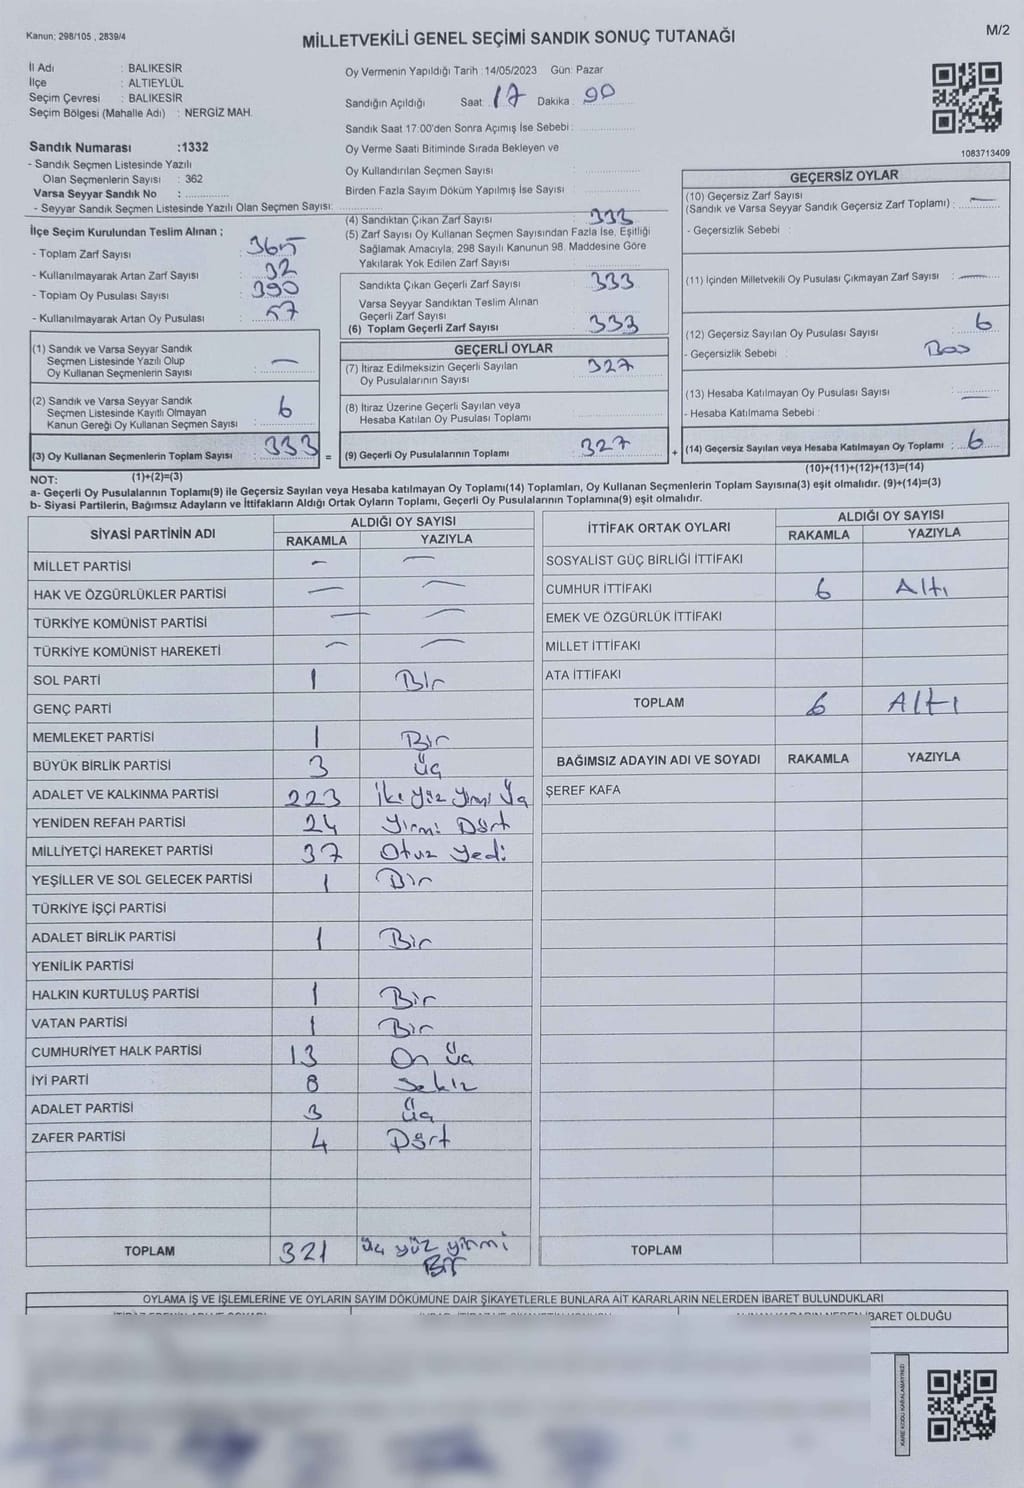 Kanun: 298/105 , 2839/4
MİLLETVEKİLİ GENEL SEÇİMİ SANDIK SONUÇ TUTANAĞI
M/2
İl Adı : BALIKESİR
İlçe : ALTIEYLÜL
Seçim Çevresi : BALIKESİR
Seçim Bölgesi (Mahalle Adı) : NERGİZ MAH.
Oy Vermenin Yapıldığı Tarih :14/05/2023 Gün: Pazar
Sandığın Açıldığı Saat: 17 Dakika:
Sandık Saat 17:00'den Sonra Açımış İse Sebebi :
Oy Verme Saati Bitiminde Sırada Bekleyen ve
Oy Kullandırılan Seçmen Sayısı :
Birden Fazla Sayım Döküm Yapılmış İse Sayısı :
1083713409
Sandık Numarası :1332
- Sandık Seçmen Listesinde Yazılı
Olan Seçmenlerin Sayısı : 362
Varsa Seyyar Sandık No :
- Seyyar Sandık Seçmen Listesinde Yazılı Olan Seçmen Sayısı:
İlçe Seçim Kurulundan Teslim Alınan ;
- Toplam Zarf Sayısı : 365
- Kullanılmayarak Artan Zarf Sayısı : 32
- Toplam Oy Pusulası Sayısı : 390
- Kullanılmayarak Artan Oy Pusulası : 57
(1) Sandık ve Varsa Seyyar Sandık
Seçmen Listesinde Yazılı Olup
Oy Kullanan Seçmenlerin Sayısı : —
(2) Sandık ve Varsa Seyyar Sandık
Seçmen Listesinde Kayıtlı Olmayan
Kanun Gereği Oy Kullanan Seçmen Sayısı : 6
(3) Oy Kullanan Seçmenlerin Toplam Sayısı : 333 =
(4) Sandıktan Çıkan Zarf Sayısı : 333
(5) Zarf Sayısı Oy Kullanan Seçmen Sayısından Fazla İse, Eşitliği
Sağlamak Amacıyla; 298 Sayılı Kanunun 98. Maddesine Göre
Yakılarak Yok Edilen Zarf Sayısı :
Sandıkta Çıkan Geçerli Zarf Sayısı : 333
Varsa Seyyar Sandıktan Teslim Alınan
Geçerli Zarf Sayısı :
(6) Toplam Geçerli Zarf Sayısı : 333
GEÇERLİ OYLAR
(7) İtiraz Edilmeksizin Geçerli Sayılan
Oy Pusulalarının Sayısı : 327
(8) İtiraz Üzerine Geçerli Sayılan veya
Hesaba Katılan Oy Pusulası Toplamı :
(9) Geçerli Oy Pusulalarının Toplamı : 327 +
GEÇERSİZ OYLAR
(10) Geçersiz Zarf Sayısı
(Sandık ve Varsa Seyyar Sandık Geçersiz Zarf Toplamı) : —
- Geçersizlik Sebebi :
(11) İçinden Milletvekili Oy Pusulası Çıkmayan Zarf Sayısı : —
(12) Geçersiz Sayılan Oy Pusulası Sayısı : 6
- Geçersizlik Sebebi : Boş
(13) Hesaba Katılmayan Oy Pusulası Sayısı : —
- Hesaba Katılmama Sebebi :
(14) Geçersiz Sayılan veya Hesaba Katılmayan Oy Toplamı : 6
NOT: (1)+(2)=(3)
(10)+(11)+(12)+(13)=(14)
a- Geçerli Oy Pusulalarının Toplamı(9) ile Geçersiz Sayılan veya Hesaba katılmayan Oy Toplamı(14) Toplamları, Oy Kullanan Seçmenlerin Toplam Sayısına(3) eşit olmalıdır. (9)+(14)=(3)
b- Siyasi Partilerin, Bağımsız Adayların ve İttifakların Aldığı Ortak Oyların Toplamı, Geçerli Oy Pusulalarının Toplamına(9) eşit olmalıdır.
SİYASİ PARTİNİN ADI ALDIĞI OY SAYISI
RAKAMLA YAZIYLA
MİLLET PARTİSİ — —
HAK VE ÖZGÜRLÜKLER PARTİSİ — —
TÜRKİYE KOMÜNİST PARTİSİ — —
TÜRKİYE KOMÜNİST HAREKETİ — —
SOL PARTİ 1 Bir
GENÇ PARTİ
MEMLEKET PARTİSİ 1 Bir
BÜYÜK BİRLİK PARTİSİ 3 Üç
ADALET VE KALKINMA PARTİSİ 223 İki yüz yirmi Üç
YENİDEN REFAH PARTİSİ 24 Yirmi Dört
MİLLİYETÇİ HAREKET PARTİSİ 37 Otuz yedi
YEŞİLLER VE SOL GELECEK PARTİSİ 1 Bir
TÜRKİYE İŞÇİ PARTİSİ
ADALET BİRLİK PARTİSİ 1 Bir
YENİLİK PARTİSİ
HALKIN KURTULUŞ PARTİSİ 1 Bir
VATAN PARTİSİ 1 Bir
CUMHURİYET HALK PARTİSİ 13 On Üç
İYİ PARTİ 8 Sekiz
ADALET PARTİSİ 3 Üç
ZAFER PARTİSİ 4 Dört
TOPLAM 321 Üç yüz yirmi
Bir
İTTİFAK ORTAK OYLARI ALDIĞI OY SAYISI
RAKAMLA YAZIYLA
SOSYALİST GÜÇ BİRLİĞİ İTTİFAKI
CUMHUR İTTİFAKI 6 Altı
EMEK VE ÖZGÜRLÜK İTTİFAKI
MİLLET İTTİFAKI
ATA İTTİFAKI
TOPLAM 6 Altı
BAĞIMSIZ ADAYIN ADI VE SOYADI RAKAMLA YAZIYLA
ŞEREF KAFA
TOPLAM
OYLAMA İŞ VE İŞLEMLERİNE VE OYLARIN SAYIM DÖKÜMÜNE DAİR ŞİKAYETLERLE BUNLARA AİT KARARLARIN NELERDEN İBARET BULUNDUKLARI
İBARET OLDUĞU